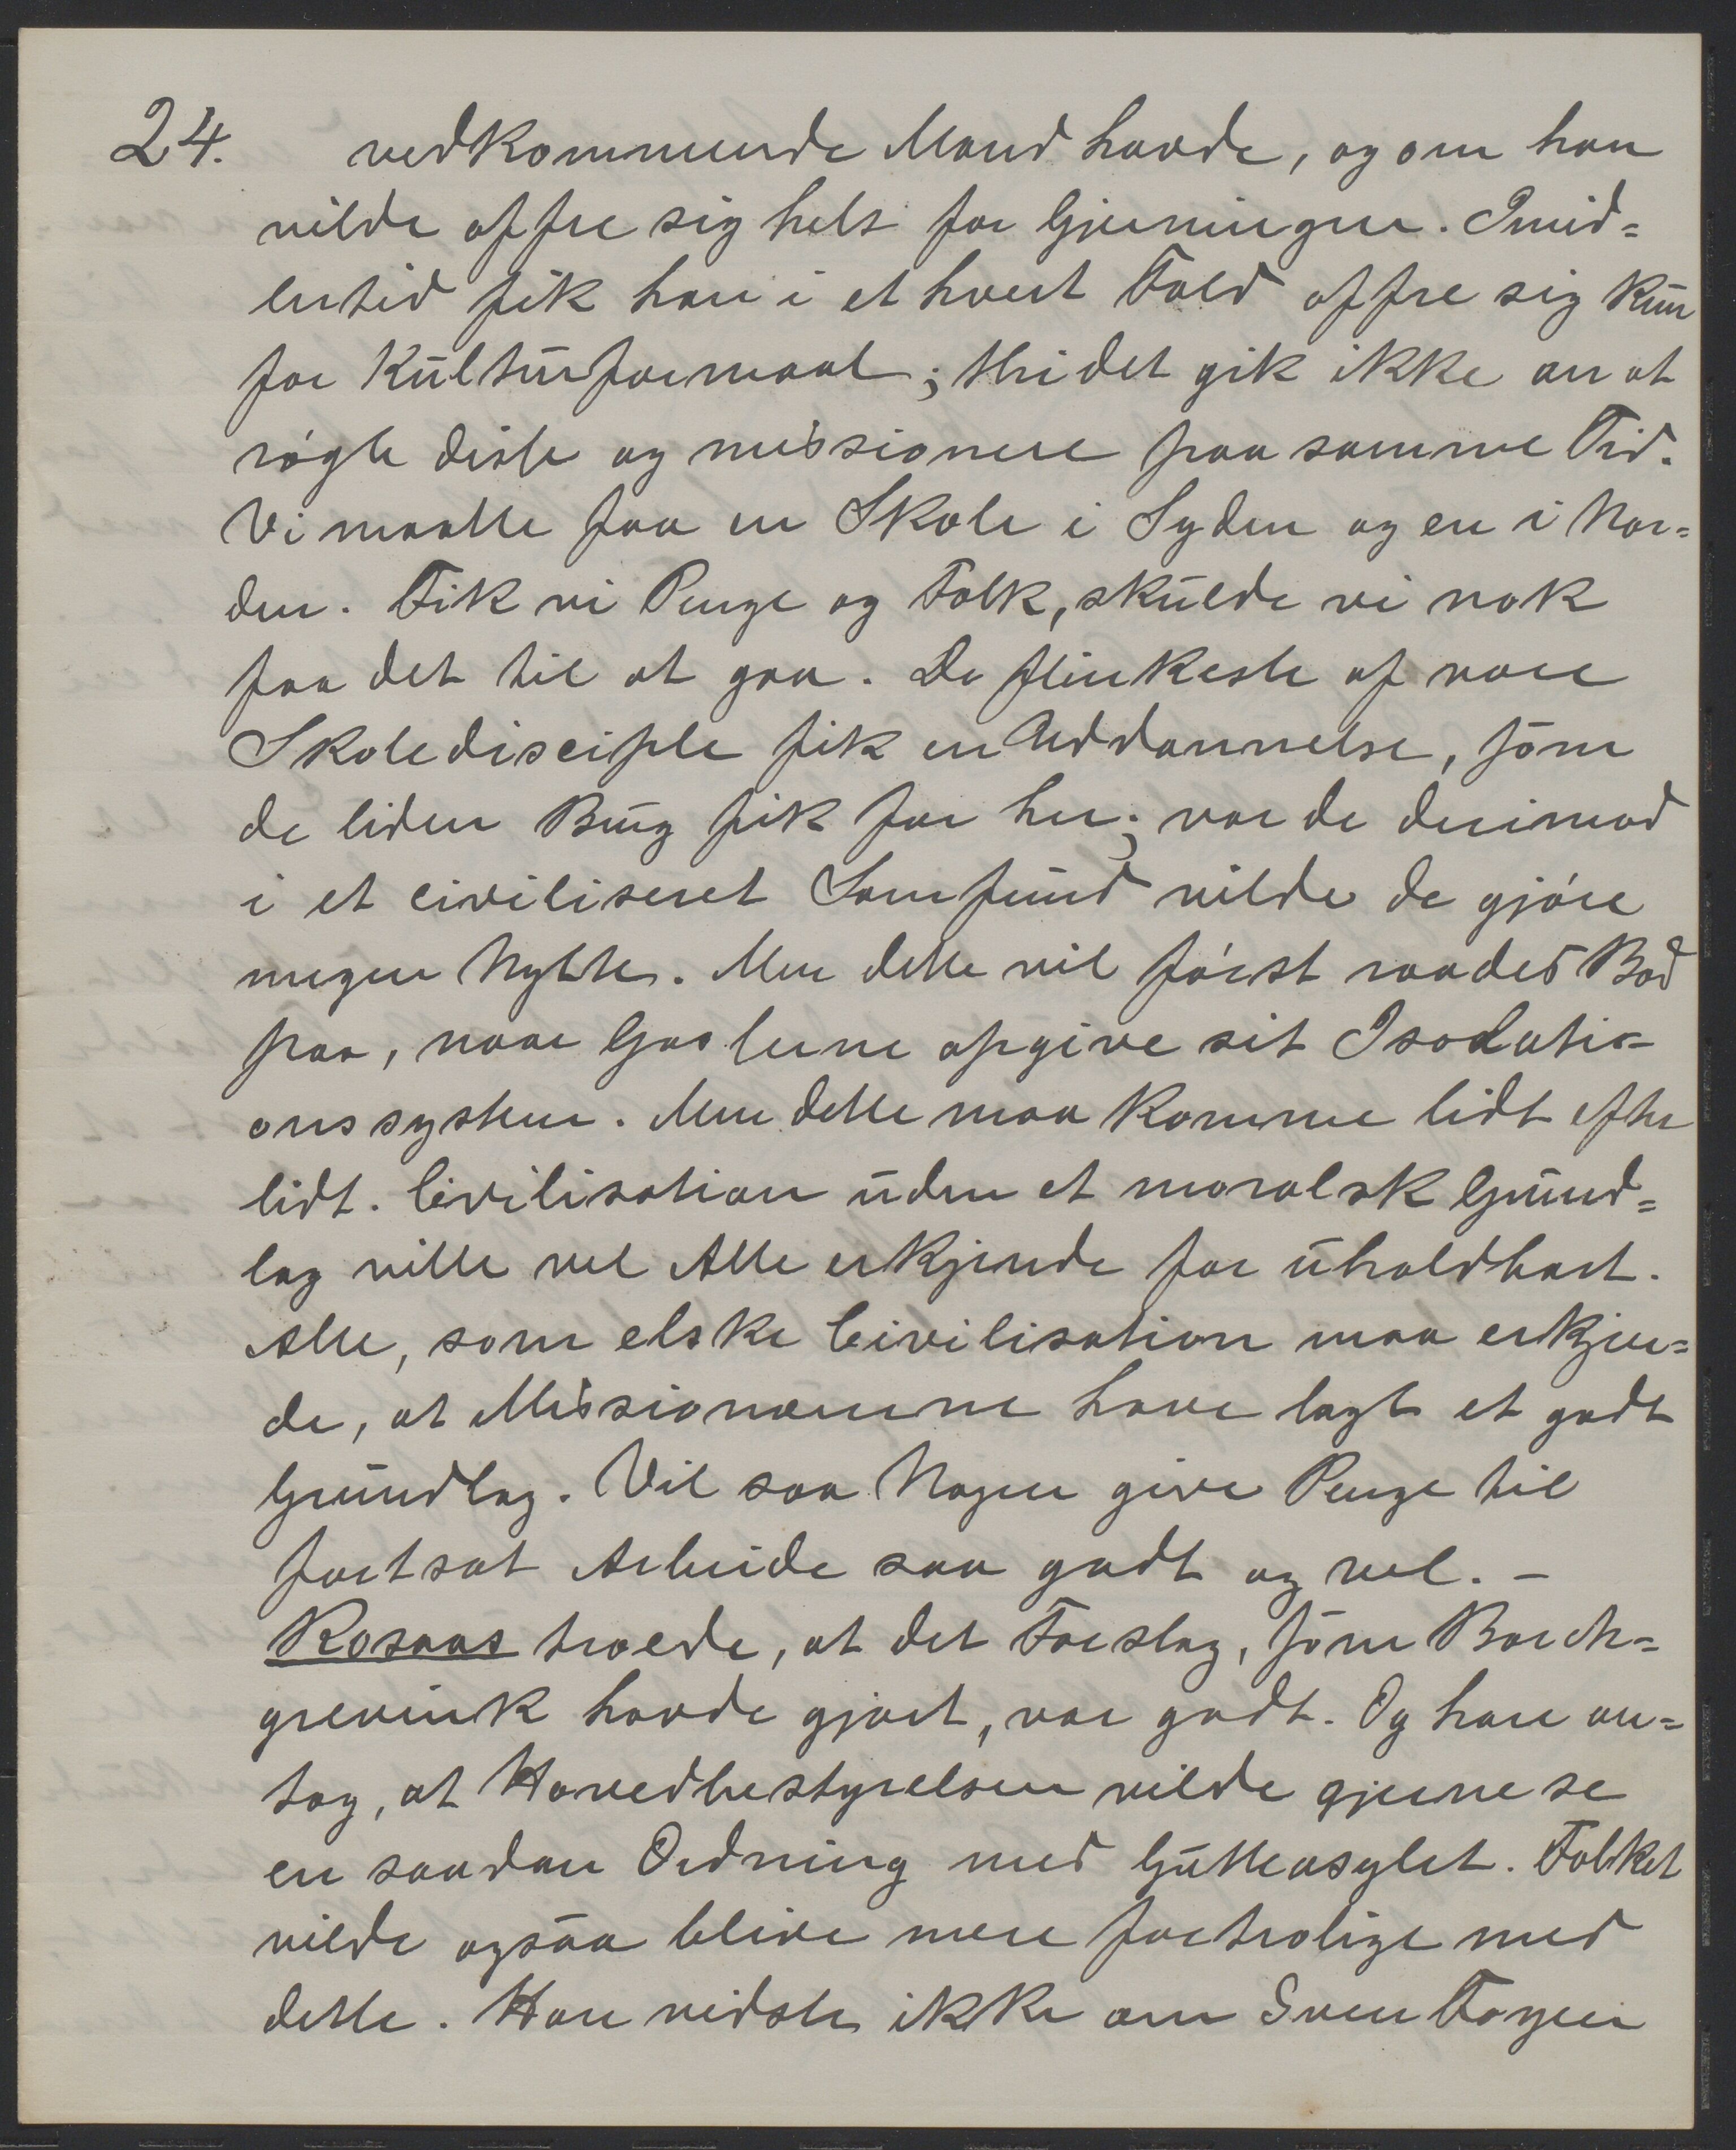 24. vedkommende Mand havde, og om han
vilde offre sig helt for Gjerningen. Imid=
lertid fik han i et hvert Fald offre sig kun
for Kulturformaal; thi det gik ikke an at
røgte disse og missionere paa samme Tid.
Vi maatte faa en Skole i Syden og en i Nor=
den. Fik vi Penge og Folk, skulde vi nok
faa det til at gaa. De flinkeste af vore
Skoledisciple fik en Uddannelse, som
de liden Brug fik for her; var de derimod
i et civiliseret Samfund vilde de gjøre
megen Nytte. Men dette vil først raades Bod
paa, naar Gaslerne opgive sit Isolati=
onssystem. Men dette maa komme lidt efter
lidt. Civilisation uden et moralsk Grund=
lag ville vel Alle erkjende for uholdbart.
Alle, som elske Civilisation maa erkjen=
de, at Missionærerne have lagt et godt
Grundlag. Vil saa Nogen give Penge til
fortsat Arbeide saa godt og vel. –
Rosaas troede, at det Forslag, som Borch=
grevink havde gjort, var godt. Og han an=
tog, at Hovedbestyrelsen vilde gjerne se
en saadan Ordning med Gutteasylet. Folket
vilde ogsaa blive mere fortrolige med
dette. Han vidste ikke om Sven Foyen